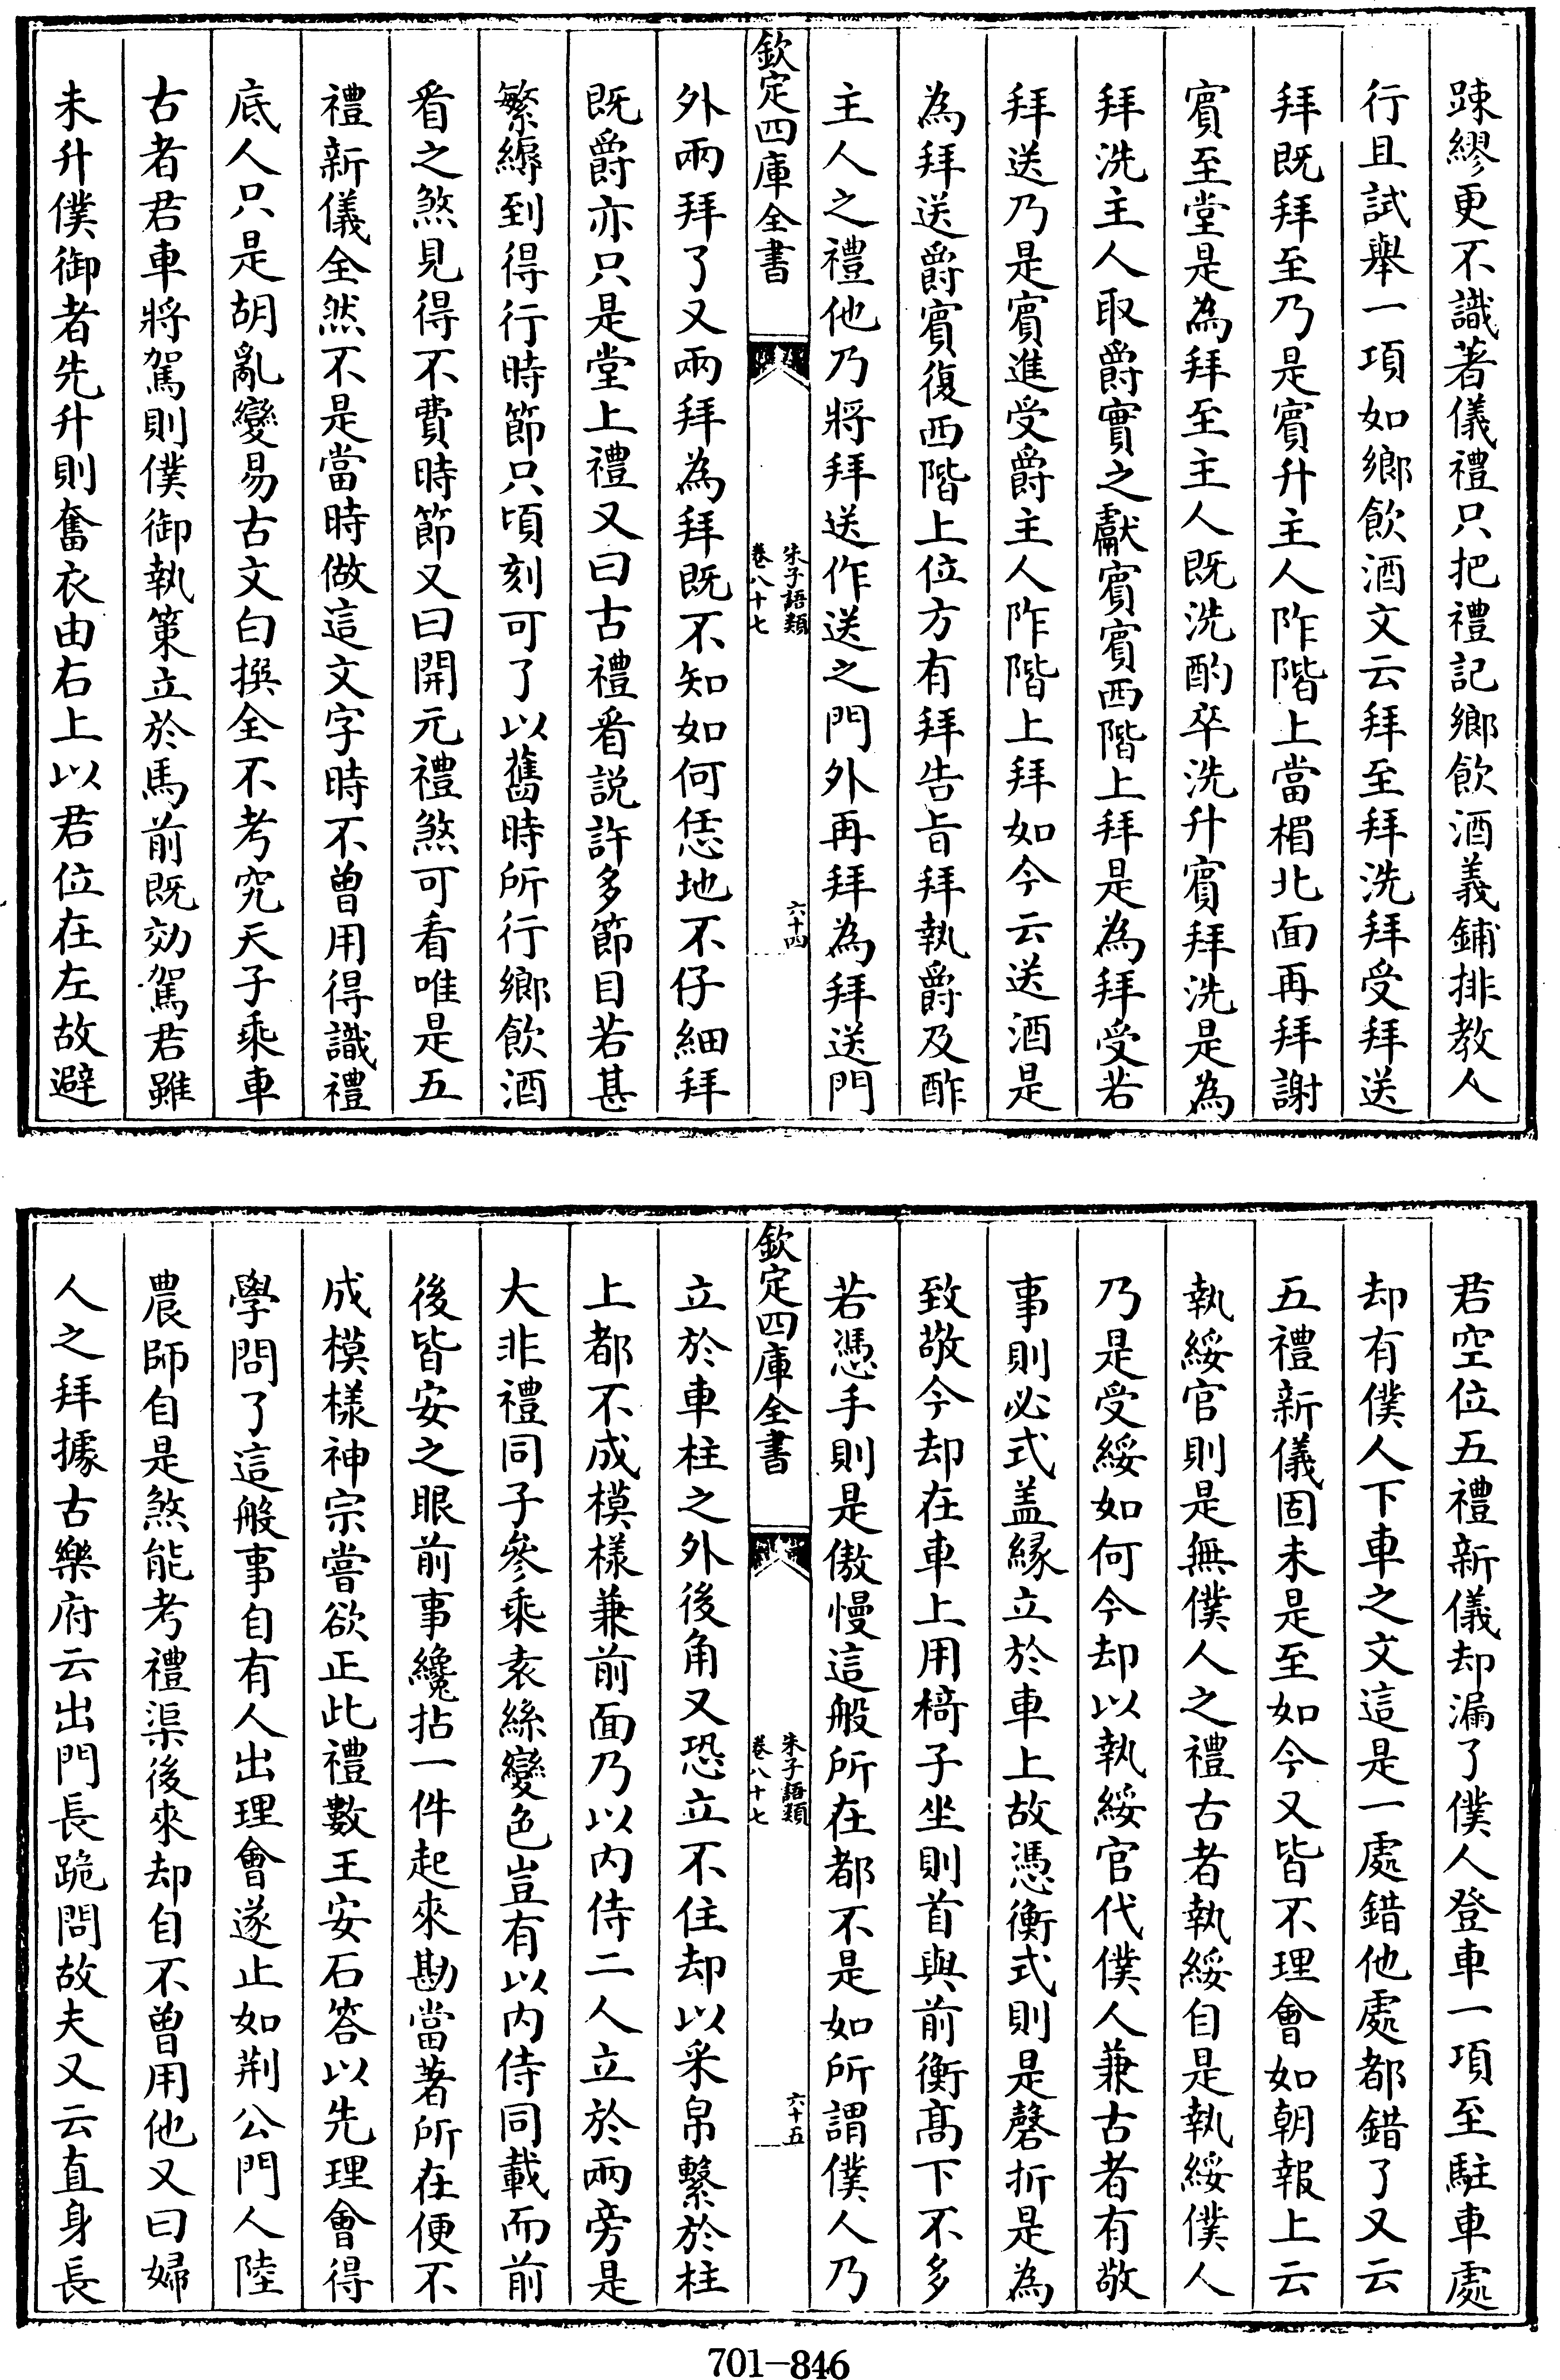 踈繆更不識著儀禮只把禮記鄉飲酒義鋪排教人
行且試舉一項如鄉飲酒文云拜至拜洗拜受拜送
拜既拜至乃是賔升主人阼階上當楣北面再拜謝
賔至堂是為拜至主人既洗酌卒洗升賔拜洗是為
拜洗主人取爵實之獻賔賔西階上拜是為拜受若
拜送乃是賔進受爵主人阼階上拜如今云送酒是
為拜送爵賔復西階上位方有拜告旨拜執爵及酢
主人之禮他乃將拜送作送之門外再拜為拜送門
欽定四庫全書
朱子語類
卷八十七
六十四
外兩拜了又兩拜為拜既不知如何恁地不仔細拜
既爵亦只是堂上禮又曰古禮看説許多節目若甚
繁縟到得行時節只頃刻可了以舊時所行鄉飲酒
看之煞見得不費時節又曰開元禮煞可看唯是五
禮新儀全然不是當時做這文字時不曾用得識禮
底人只是胡亂變易古文白撰全不考究天子乘車
古者君車將駕則僕御執策立於馬前既効駕君雖
未升僕御者先升則奮衣由右上以君位在左故避
君空位五禮新儀却漏了僕人登車一項至駐車處
却有僕人下車之文這是一處錯他處都錯了又云
五禮新儀固未是至如今又皆不理會如朝報上云
執綏官則是無僕人之禮古者執綏自是執綏僕人
乃是受綏如何今却以執綏官代僕人兼古者有敬
事則必式盖縁立於車上故憑衡式則是磬折是為
致敬今却在車上用椅子坐則首與前衡髙下不多
若憑手則是傲慢這般所在都不是如所謂僕人乃
欽定四庫全書
朱子語類
卷八十七
六十五
立於車柱之外後角又恐立不住却以采帛繫於柱
上都不成模樣兼前面乃以内侍二人立於兩旁是
大非禮同子參乘袁絲變色豈有以内侍同載而前
後皆安之眼前事纔拈一件起來勘當著所在便不
成模樣神宗嘗欲正此禮數王安石答以先理會得
學問了這般事自有人出理會遂止如荆公門人陸
農師自是煞能考禮渠後來却自不曾用他又曰婦
人之拜據古樂府云出門長跪問故夫又云直身長
701-846